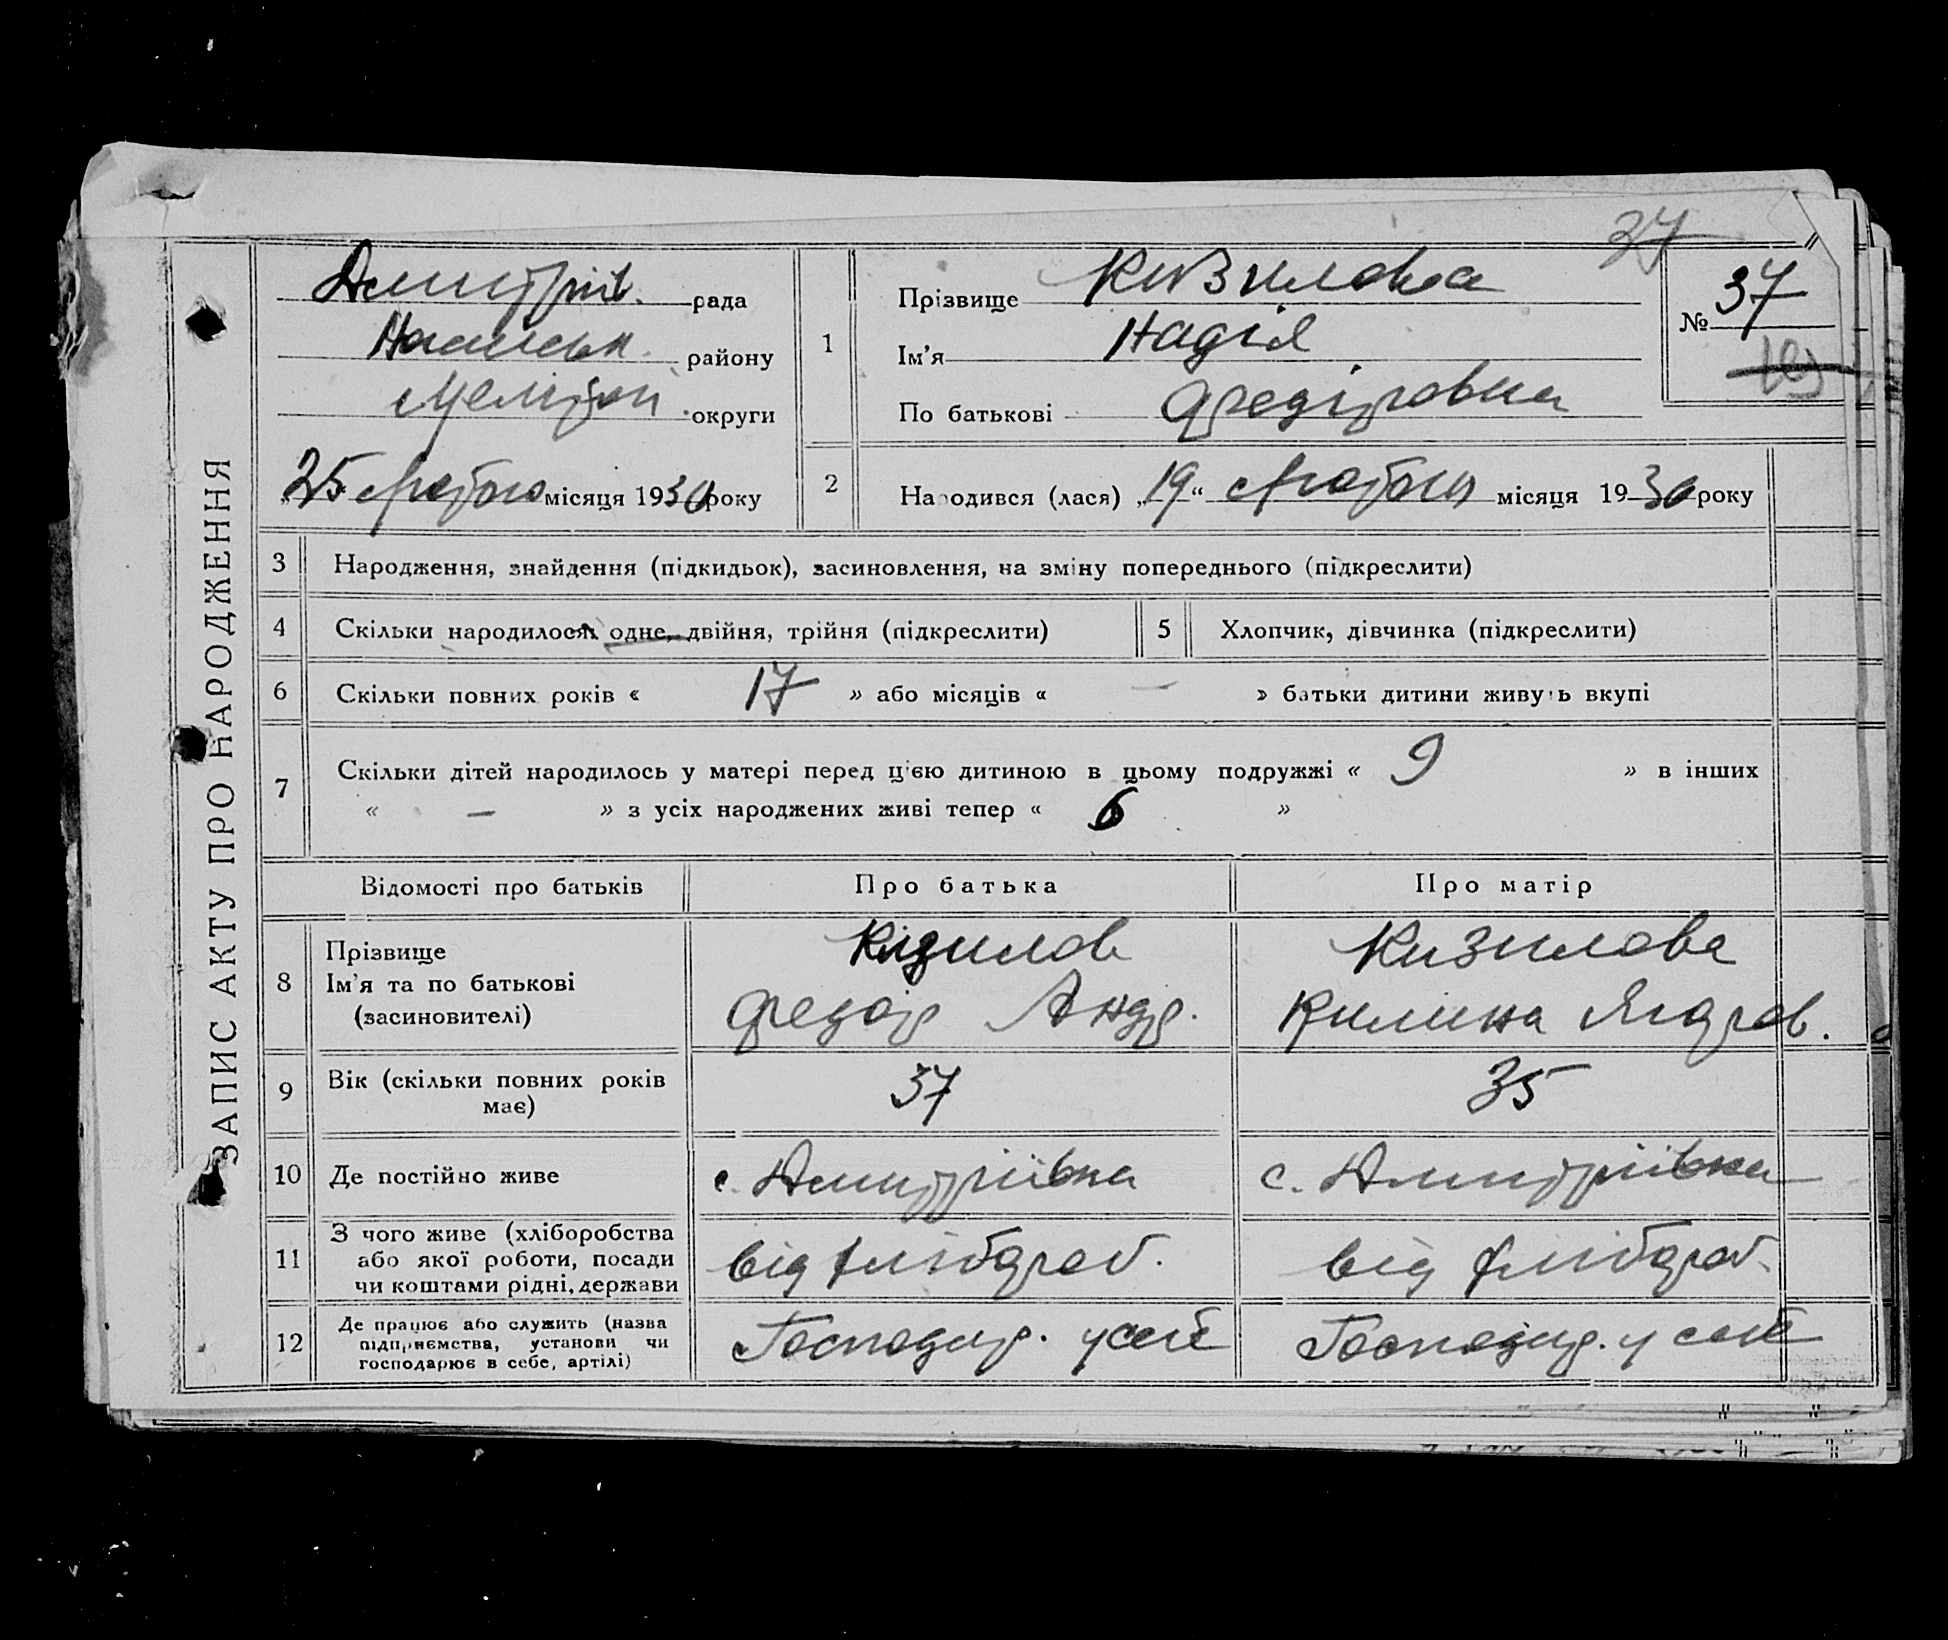 ЗАПИС АКТУ ПРО НАРОДЖЕННЯ
37
Дмитрів. рада
району
Мелітоп. округи
"25 лютого місяця 1930 року
1
Прізвище Кизилова
Ім'я Надія
По батькові Федіровна
№ 37
2
Народився (лася) „19“ лютого місяця 1930 року
3 Народження, знайдення (підкидьок), засиновлення, на зміну попереднього (підкреслити)
4 Скільки народилося: одне, двійня, трійня (підкреслити) 5 Хлопчик, дівчинка (підкреслити)
6 Скільки повних років « 17 » або місяців « — » батьки дитини живуть вкупі
7 Скільки дітей народилось у матері перед цією дитиною в цьому подружжі « 9 » в інших
« — » з усіх народжених живі тепер « 6 »
Відомості про батьків Про батька Про матір
8
Прізвище
Ім'я та по батькові
(засиновителі)
Кізилов
Федор Андр.
Кизилова
Килина
9
Вік (скільки повних років
має)
37 35
10 Де постійно живе с. Дмитріївка с. Дмитріївка
11
З чого живе (хліборобства
або якої роботи, посади
чи коштами рідні, держави
від хлібороб. від хлібороб.
12
Де працює або служить (назва
підприємства, установи чи
господарює в себе, артілі)
Господар. у себе Господар. у себе